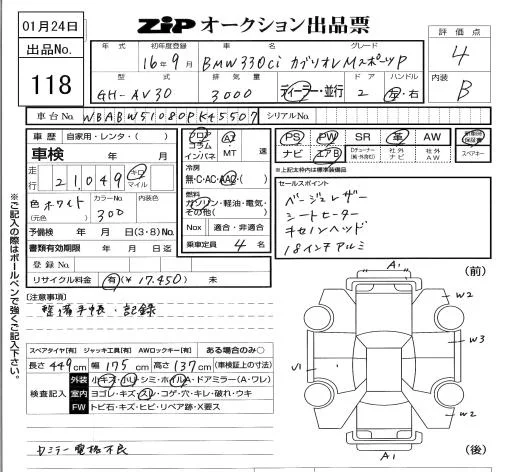 01月24日
ZIP オークション出品票
評価点
4
出品No.
118
年式 初年度登録 車名 グレード
16年9月 BMW330ci カブリオレMスポーツP
型式 排気量 ドア ハンドル
GH-AV30 3000 ディーラー・並行 2 左・右
内装
B
車台No. WBABW51080PK45507 シリアルNo.
車歴 自家用・レンタ・( )
車検 年 月
走行 21,049 キロ マイル
色 ホワイト (元色) カラーNo. 300 内装色
予備検 年 月 日(3・8)No.
書類有効期限 年 月 日迄
登録No.
リサイクル料金 有(¥ 17,450) 未
フロア コラム インパネ AT MT 速
冷房
無・C・AC・AAC・( )
燃料
ガソリン・軽油・電気・その他( )
Nox 適合・非適合
乗車定員 4 名
PS PW SR 革 AW
ナビ エアB
社外ナビ 社外AW
新車時保証書
スペアキー
※上記太枠内は標準装備品
セールスポイント
ベージュレザー
シートヒーター
キセノンヘッド
18インチアルミ
※ご記入の際はボールペンで強くご記入下さい。
[注意事項]
整備手帳・記録
スペアタイヤ[有] ジャッキ工具[有] AWロックキー[有] ある場合のみ○
長さ 449cm 幅 175cm 高さ 137cm (車検証上の寸法)
検査記入
外装 小キズ・小ヘコ・シミ・ホイルA・ドアミラー(A・ワレ)
室内 ヨゴレ・キズ・スレ・コゲ・穴・キレ・破れ・ウキ
FW トビ石・キズ・ヒビ・リペア跡・X要ス
カミラー電格不良
A1
(前)
W2
W3
U1
W2
A1
(後)